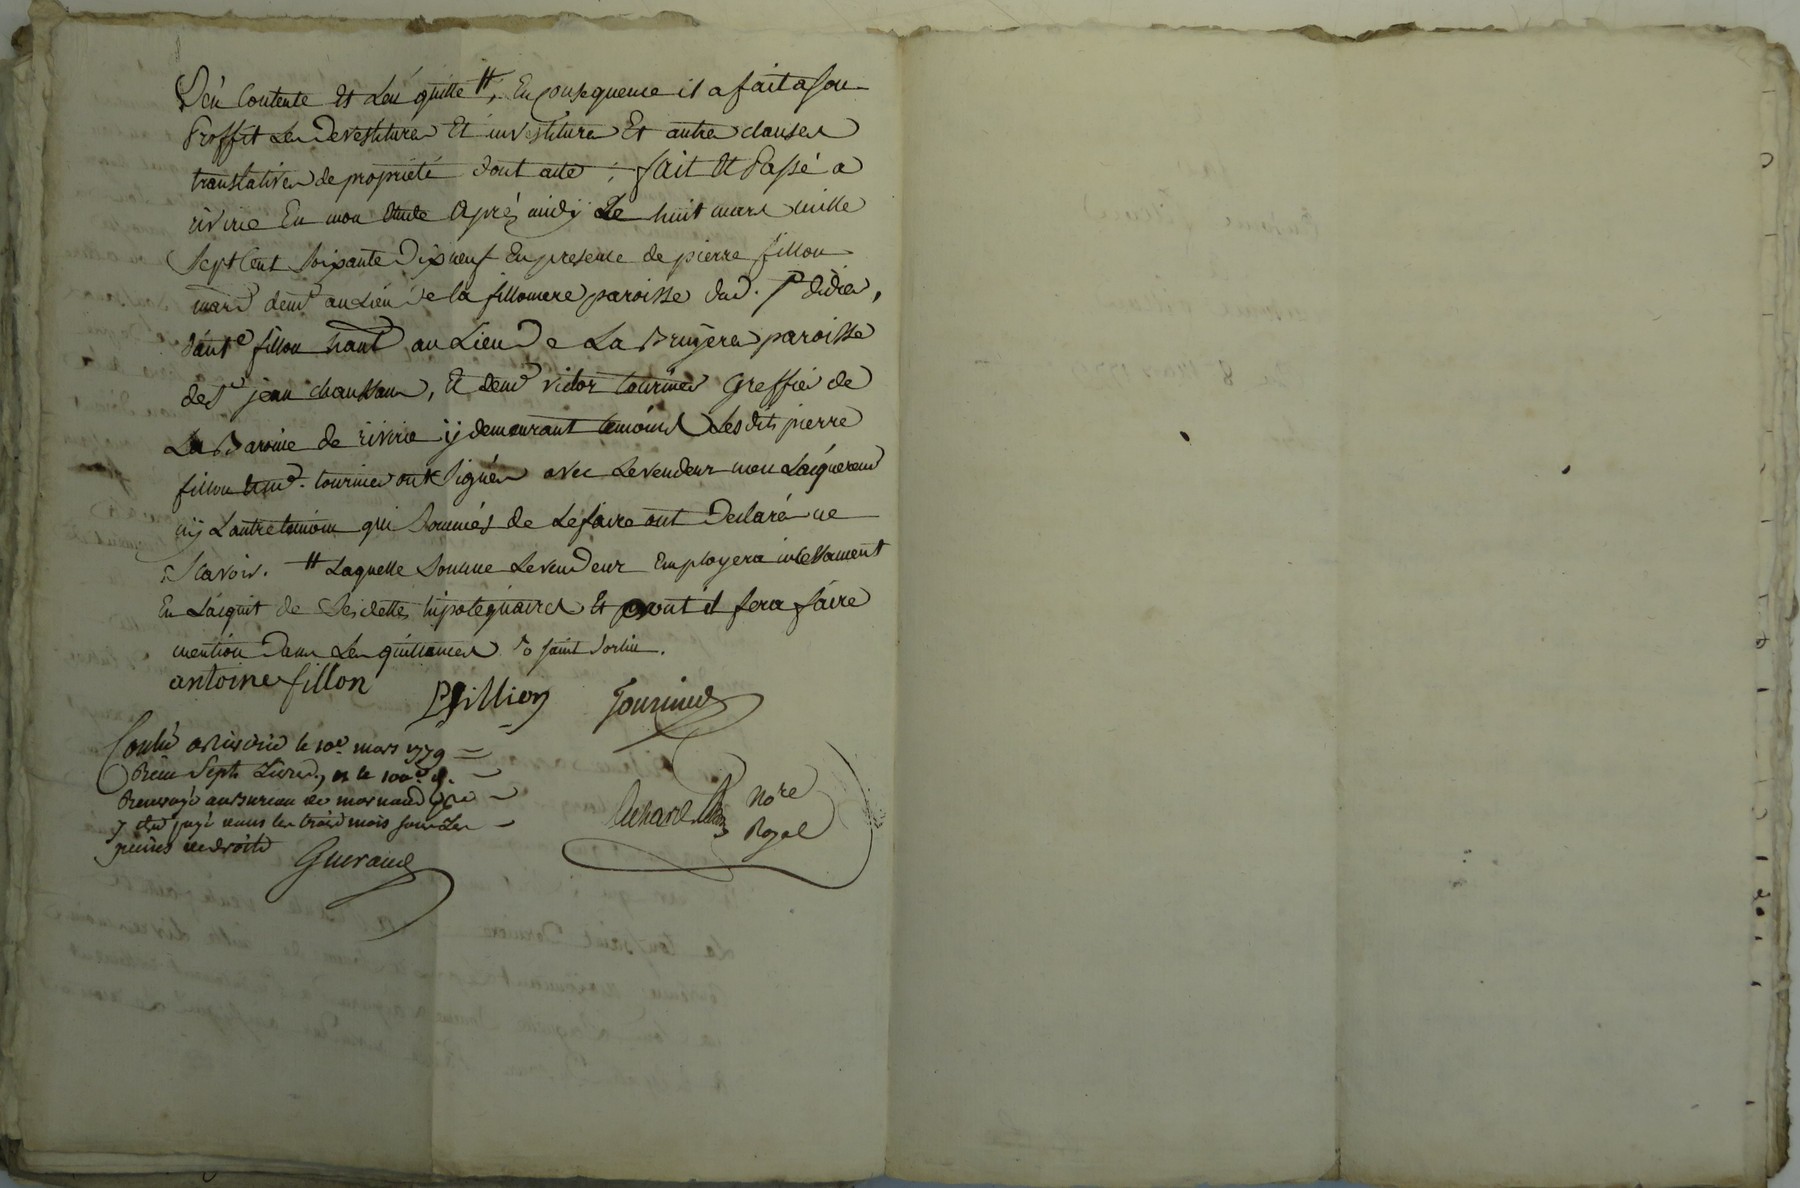 S'en Contente et L'en quitte #, En consequence il a fait a son
Proffit Les Devestitures Et investitures Et autres clauses
translatives de propriété dont acte ; fait Et Passé a
riverie En mon Etude Aprés midy Le huit mars mille
Sept Cent Soixante Dix neuf En presence de pierre fillon
mard demt au Lieu De la fillonniere paroisse dud. St didier,
fillon habt au Lieu De La Bruyere paroisse
de St jean chaussan, Et victor tournier Greffier de
La Baronie de riverie y demeurant temoins Lesdits pierre
fillon Et tournier ont Signés avec Le vendeur non L'acquereur
ny L'autre temoin qui Sommés de Le faire ont Declaré ne
Scavoir. # Laquelle Somme Le vendeur Employera incessament
En L'acquit de Ses dettes hipotequaires Et dont il fera faire
mention Dans Les quittances
antoine fillon
Pfillion Tournier
Conlé a Riverie le 10e mars 1779
Reçu Sept Livres,
Renvoyé au Bureau de mornand
dans les trois mois sous Les
peines de droits
Guerand
Nore
Royal